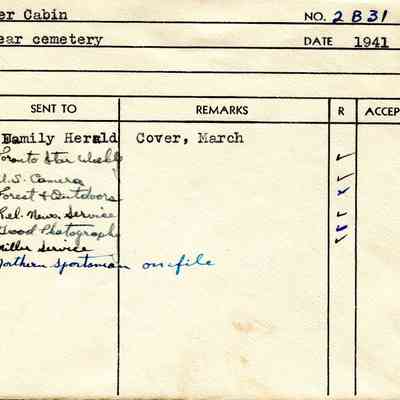 er Cabin NO. 2 B 31
ear cemetery DATE 1941
SENT TO REMARKS R ACCEP
Family Herald Cover, March
Toronto Star Weekly
U.S. Camera
Forest & Outdoors
Rel. News Service
Good Photography
Miller Service
Northern Sportsman on file